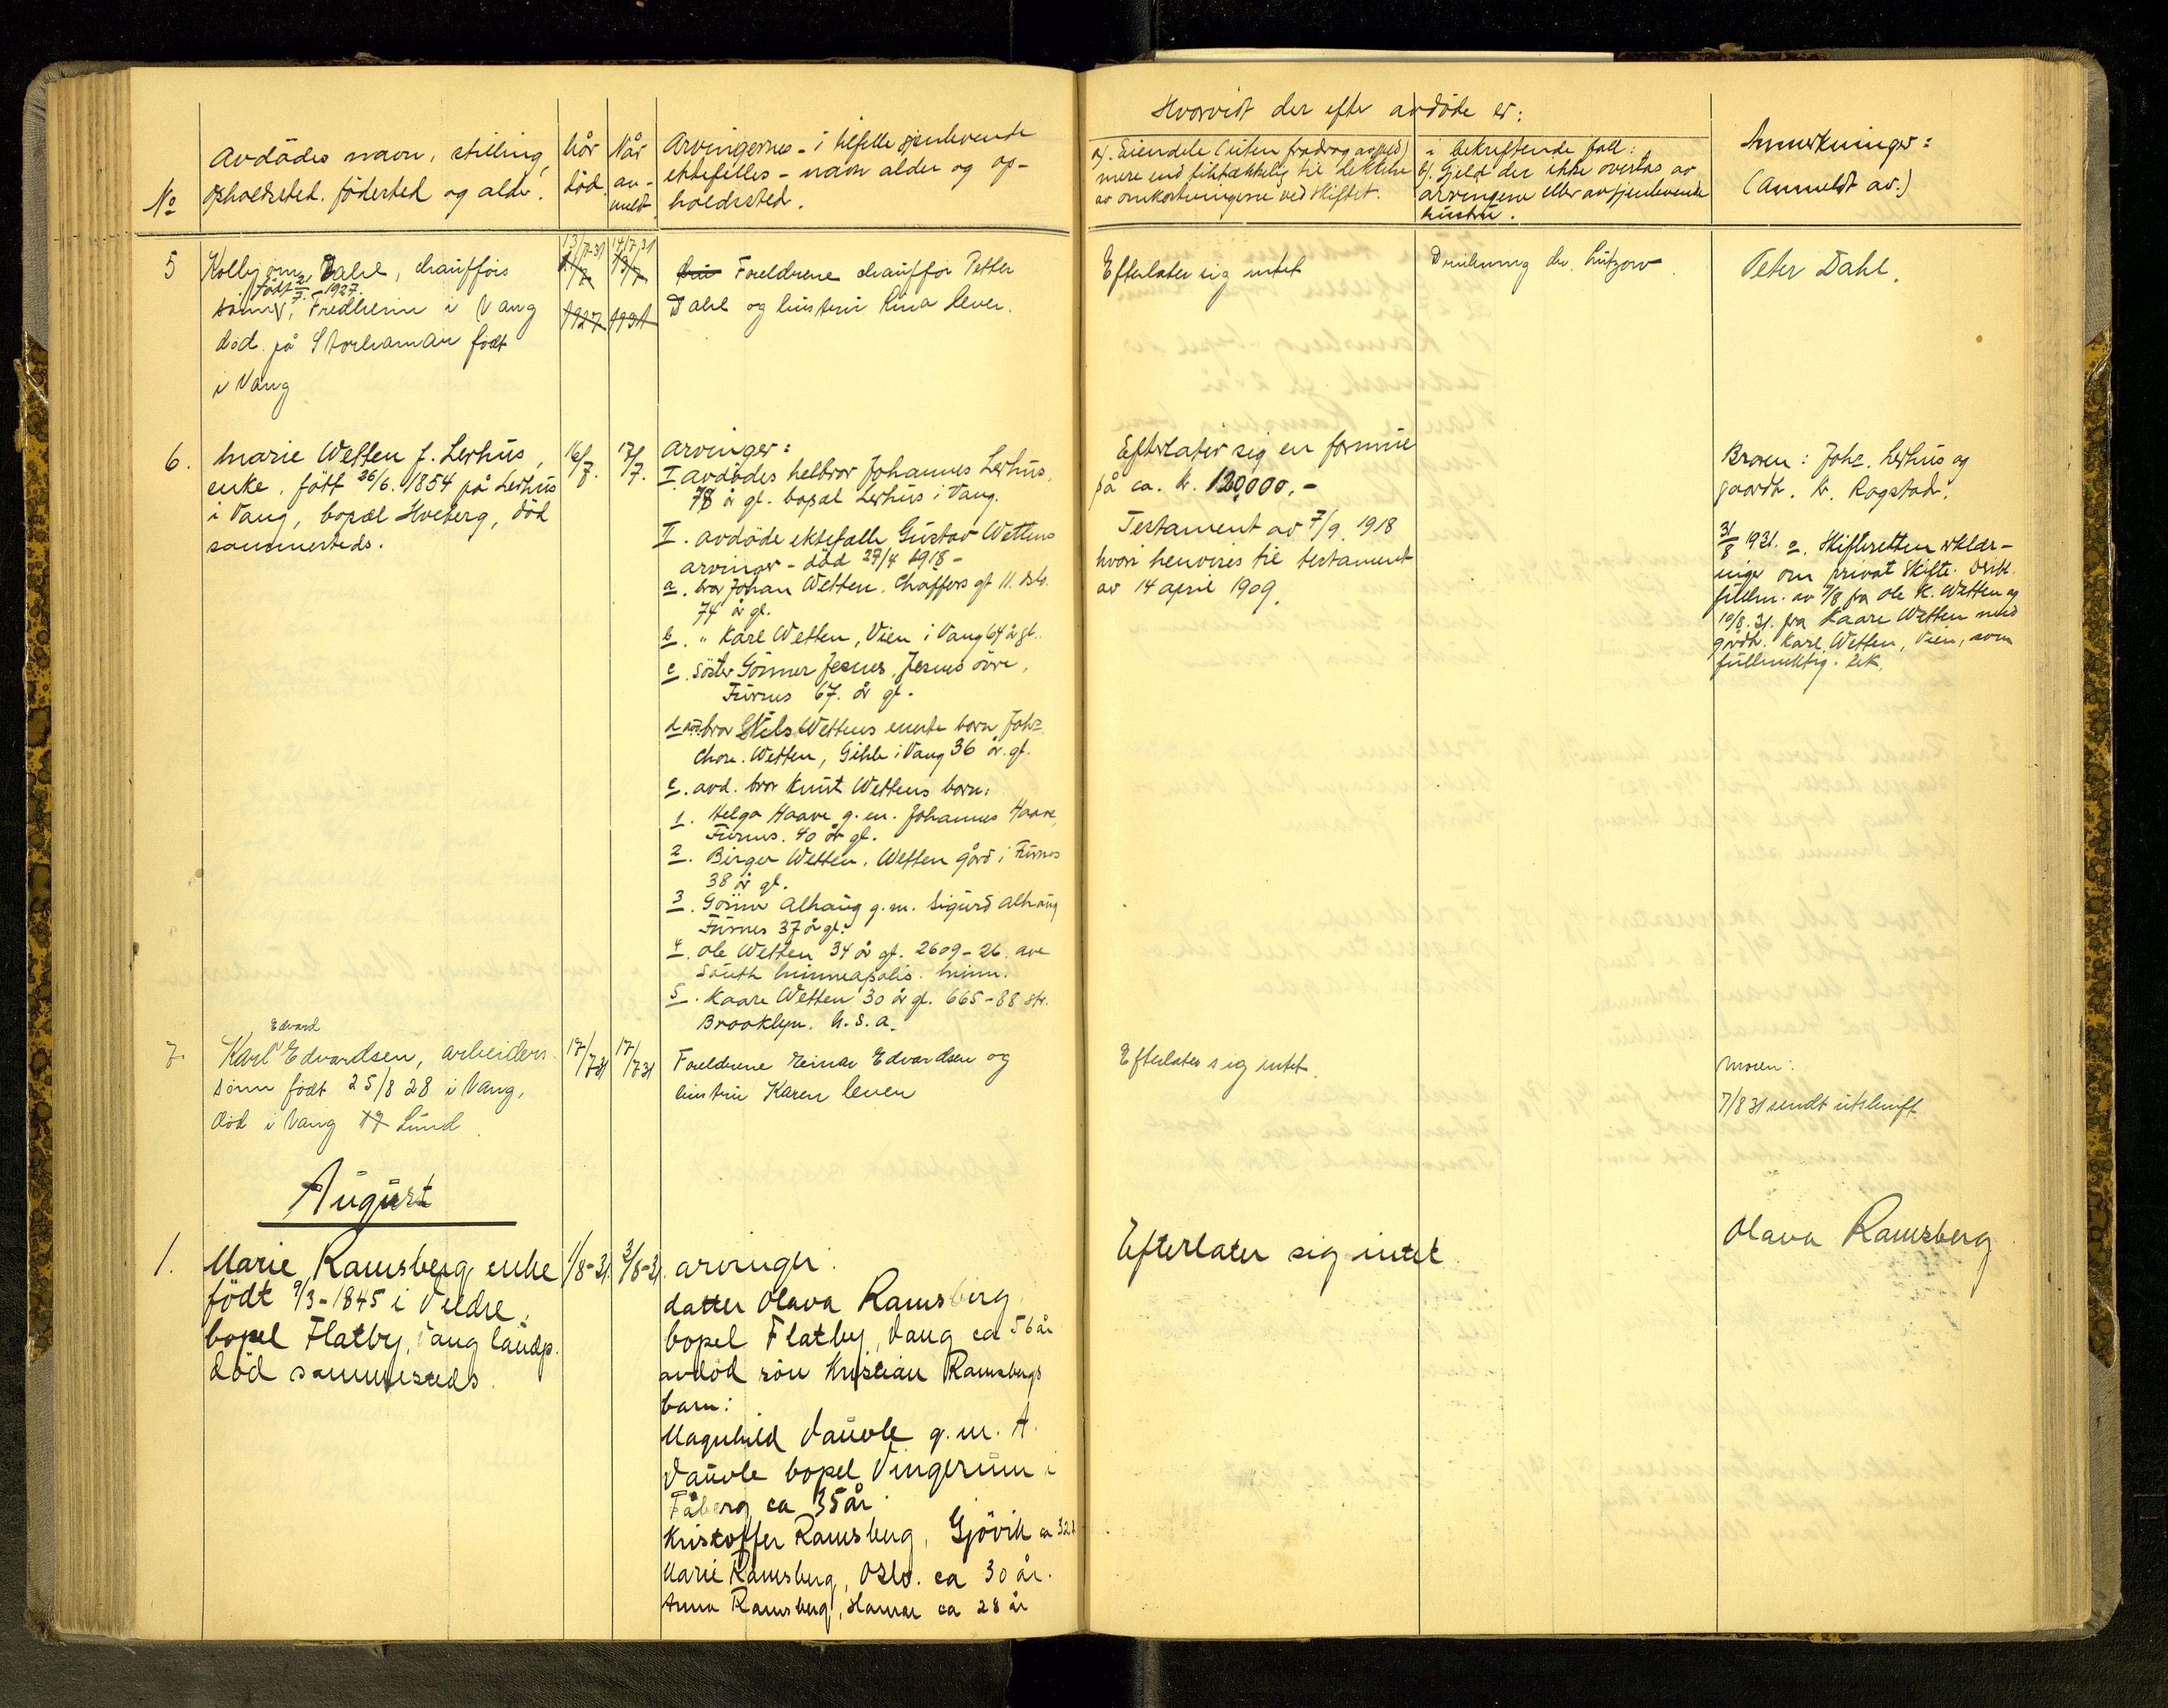 No
Avdödes navn, stilling,
opholdssted, födested og alder.
Når
död
Når
an-
meldt
Arvingernes - i tilfelle gjenlevende
ektefelles - navn alder og op-
holdssted.
Hvorvidt der efter avdöde er:
a). Eiendele (uten fradrag av gjeld)
mere end tilstrækkelig til dekkelse
av omkostningerne ved skiftet.
i bekreftende fall:
b). Gjeld der ikke overtas av
arvingene eller av gjenlevende
hustru.
Anmerkninger:
(Anmeldt av.)
5
Kolbjörn Dahl, chaufförs
född 2/7 1927.
sönn, Fredheim i Vang
död på Storhamar födt
i Vang
13/7-31
14/7-31
1927
1931
Foreldrene chauffør Petter
Dahl og hustru Rina lever.
Efterlater sig intet
Drukning
Peter Dahl.
6.
Marie Wetten f. Lerhus,
enke, födt 26/6. 1854 på Lerhus
i Vang, bopæl Hoeberg, död
sammesteds.
16/7.
17/7.
Arvinger:
I avdödes helbror Johannes Lerhus,
78 år gl. bopæl Lerhus i Vang.
II. avdöde ektefelle Gustav Wettens
arvinger - död 27/4 1918 -
a. bror Johan Wetten, gt 11. Oslo.
74 år gl.
b. " Karl Wetten, Vien i Vang 64 år gl.
c. söster Gönner Jesnes, Jesnes övre,
Furnes 67. år gl.
d. bror Nils Wettens eneste barn, Johs
Chr. Wetten, i Vang 36 år gl.
e. avd. bror Knut Wettens barn:
1. Helga Haave g. m. Johannes Haave,
Furnes. 40 år gl.
2. Birger Wetten, Wetten gård i Furnes
38 år gl.
3. Gönner Alhaug g. m. Sigurd Alhaug
Furnes 37 år gl.
4. Ole Wetten 34 år gl. 2609 - 26. ave
South Minneapolis. Minn.
5. Kaare Wetten 30 år gl. 665 - 88 str.
Brooklyn. U.S.A.
Efterlater sig en formue
på ca. kr. 120,000,-
Testament av 7/9. 1918
hvori henvises til testament
av 14 april 1909.
Broren: Johs. Lerhus og
gaardbr. K. Rogstad.
31/8 1931. Skifteretten erklær-
inger om privat skifte. Vedl.
fullm. av 7/8 fra Ole K. Wetten og
10/8. 31. fra Kaare Wetten med
gårdbr. Karl Wetten, Vien, som
fullmektig.
7
Edvard
Karl Edvardsen, arbeiders
sönn födt 25/8 28 i Vang,
död i Vang Lund
17/7 31
17/7 31
Foreldrene Einar Edvardsen og
hustru Karen lever
Efterlater sig intet.
Moren:
7/8 31 sendt utskrift
August
1.
Marie Ramsberg, enke
födt 9/3 - 1845 i Veldre,
bopel Flatby, Vang landp.
död sammesteds.
1/8-31
3/8-31
arvinger:
datter Olava Ramsberg,
bopel Flatby, Vang ca 56 år
avdöd sön Kristian Ramsbergs
barn:
Magnhild Vauvle g. m. A.
Vauvle bopel Vingerum i
Fåberg, ca 35 år.
Kristoffer Ramsberg, Gjövik ca 32 å
Marie Ramsberg, Oslo. ca 30 år.
Anna Ramsberg, Hamar ca 28 år
Efterlater sig intet
Olava Ramsberg